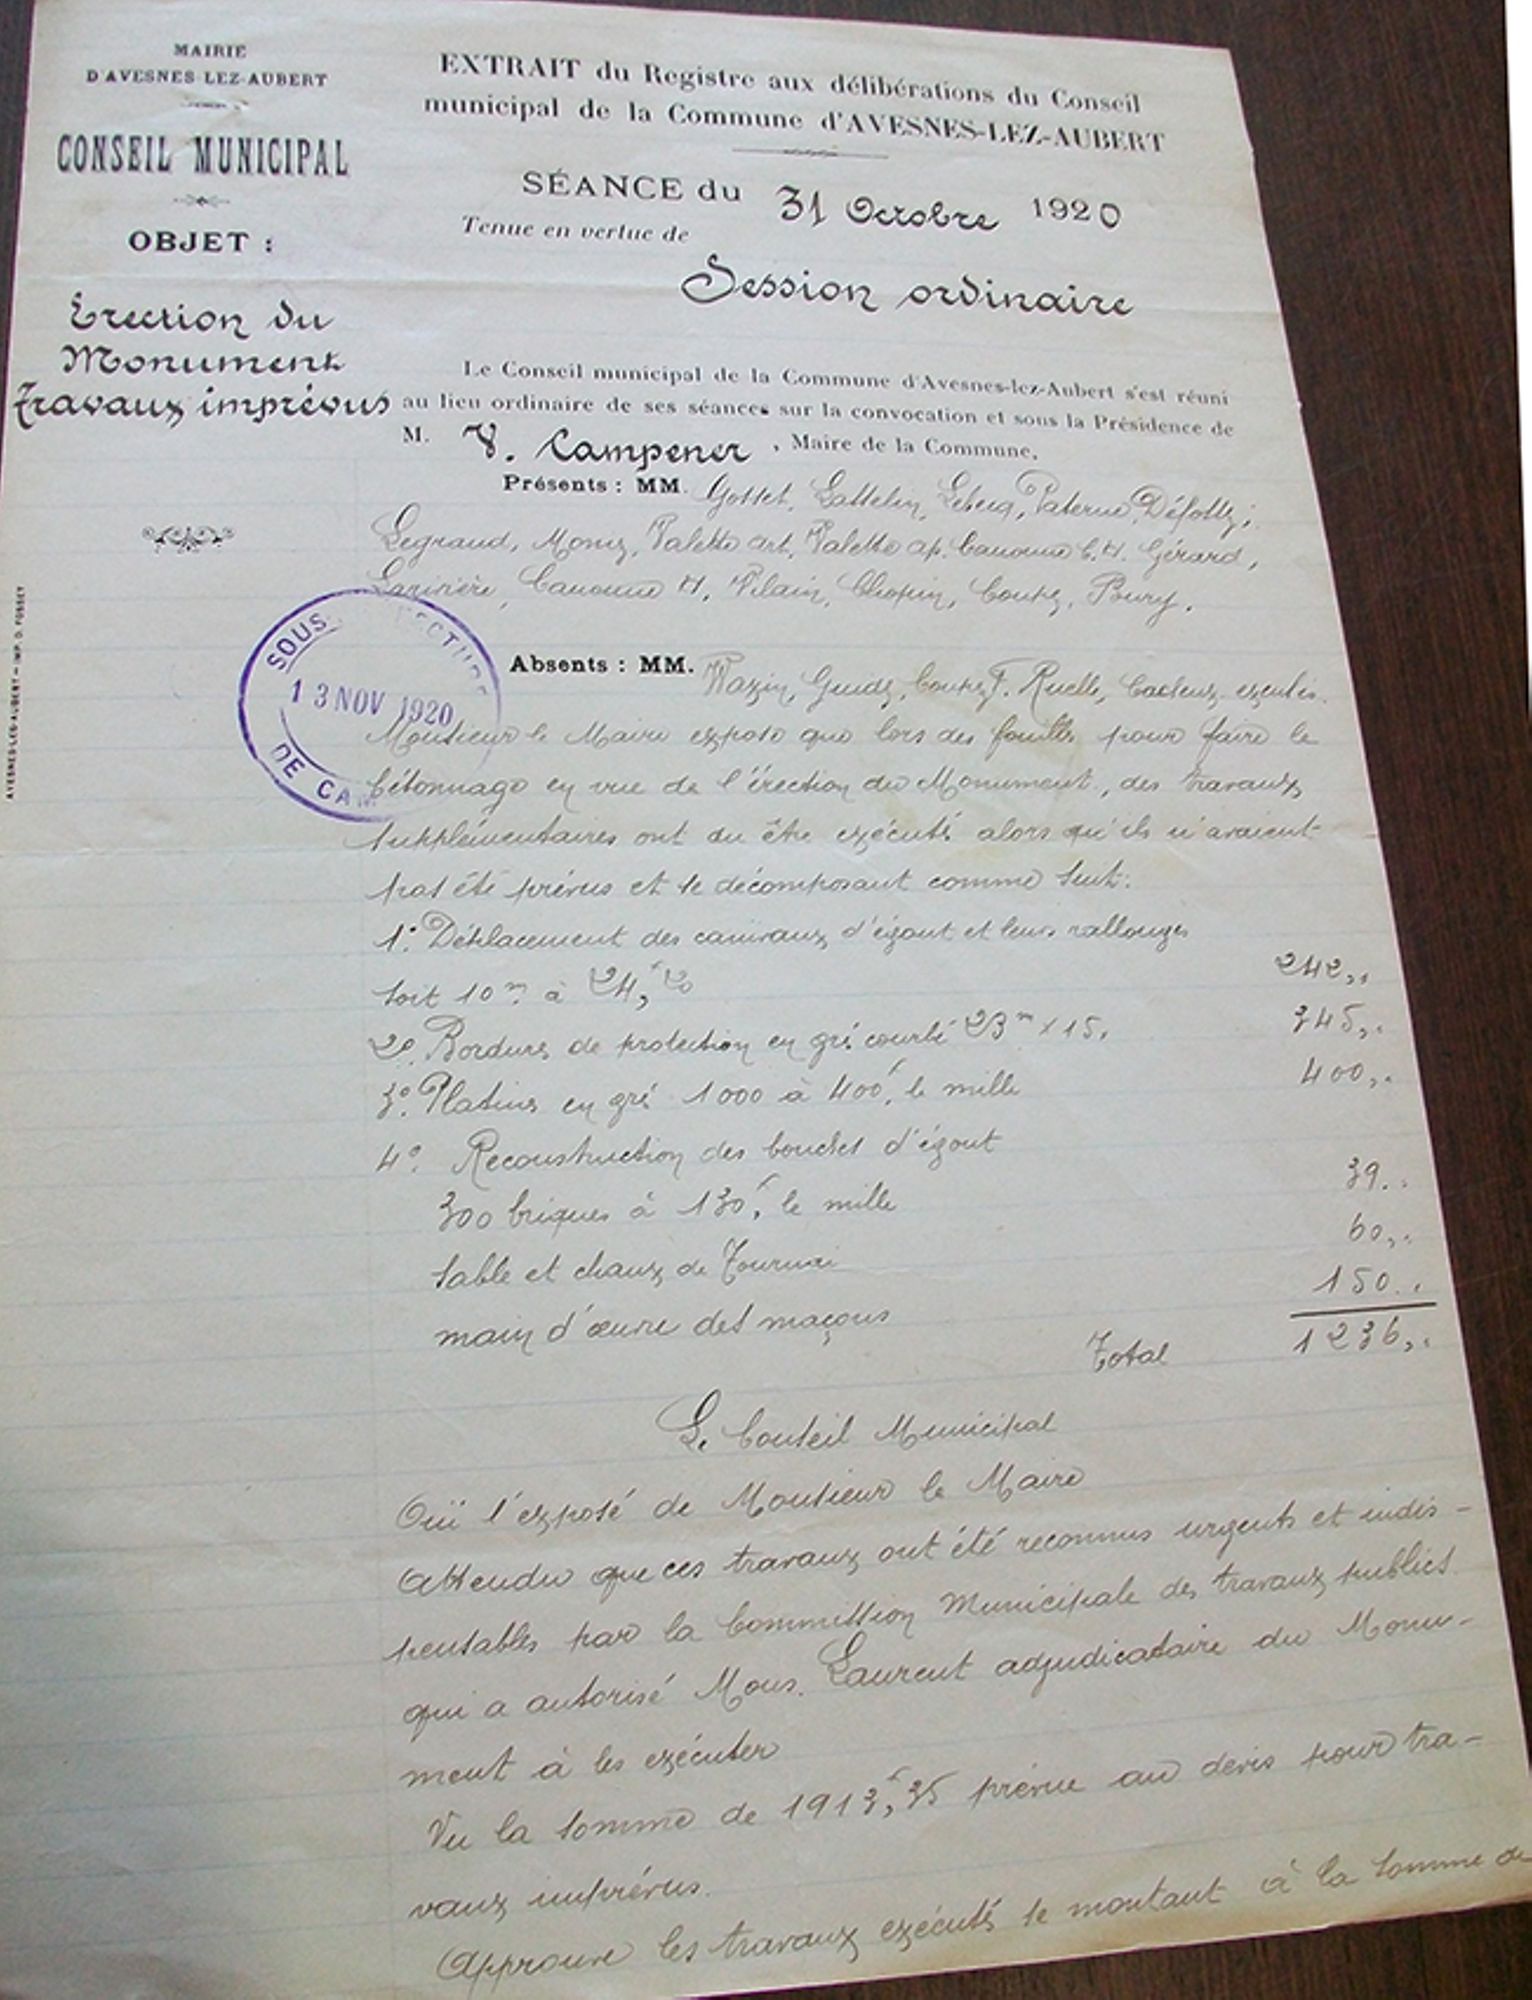 MAIRIE
D'AVESNES-LEZ-AUBERT
CONSEIL MUNICIPAL
OBJET :
Erection du
Monument
Travaux imprévus
AVESNES-LEZ-AUBERT — IMP. D. FOSSEY
EXTRAIT du Registre aux délibérations du Conseil
municipal de la Commune d'AVESNES-LEZ-AUBERT
SÉANCE du 31 Octobre 1920
Tenue en vertue de
Session ordinaire
Le Conseil municipal de la Commune d'Avesnes-lez-Aubert s'est réuni
au lieu ordinaire de ses séances sur la convocation et sous la Présidence de
M. V. Campener, Maire de la Commune.
Présents : MM. Gosset, Lebecq, Paterne,
Legrand, Valette art, Valette ap. Canonne C. H. Gérard,
Larivière, Canonne H, Vilain, Chopin, Coupez, Boury.
SOUS ECTURE
13 NOV 1920
DE CAM
Absents : MM. Wazin, Coupez F. Ruelle, Cacheux excusés.
Monsieur le Maire expose que lors des fouilles pour faire le
bétonnage en vue de l'érection du Monument, des travaux
supplémentaires ont du être exécutés alors qu'ils n'avaient
pas été prévus et se décomposant comme suit:
1° Déplacement des caniveaux d'égout et leurs rallonges
soit 10m à 24f,20 242,,
2° Bordures de protection en grés courbé 23m x 15, 345,,
3° Platines en grés 1000 à 400f, le mille 400,,
4° Reconstruction des bouches d'égout
300 briques à 130f, le mille 39,,
sable et chaux de Tournai 60,,
main d'œuvre des maçons 150,,
Total 1236,,
Le Conseil Municipal
Ouï l'exposé de Monsieur le Maire
Attendu que ces travaux ont été reconnus urgents et indis-
pensables par la Commission Municipale des travaux publics
qui a autorisé Mons. Laurent adjudicataire du Monu-
ment à les exécuter
Vu la somme de 1913f,35 prévue au devis pour tra-
vaux imprévus.
Approuve les travaux exécutés se montant à la somme de